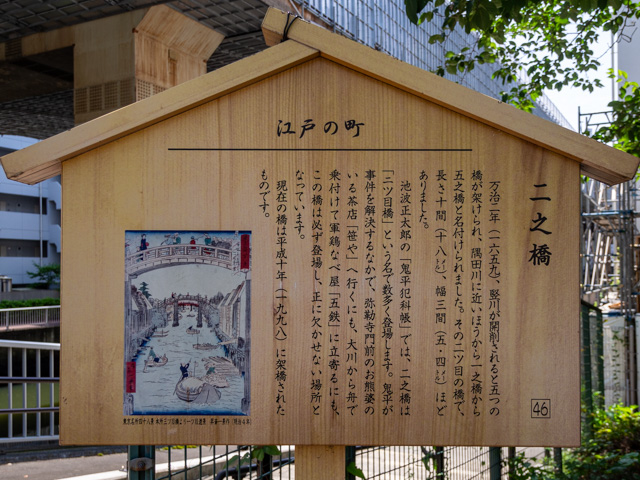 江戸の町
二之橋
万治二年（一六五九）、竪川が開削されると五つの
橋が架けられ、隅田川に近いほうから一之橋から
五之橋と名付けられました。その二ツ目の橋で、
長さ十間（十八メートル）、幅三間（五・四メートル）ほど
ありました。
池波正太郎の「鬼平犯科帳」では、二之橋は
「二ツ目橋」という名で数多く登場します。鬼平が
事件を解決するなかで、弥勒寺門前のお熊婆の
いる茶店「笹や」へ行くにも、大川から舟で
乗付けて軍鶏なべ屋「五鉄」に立寄るにも、
この橋は必ず登場し、正に欠かせない場所と
なっています。
現在の橋は平成十年（一九九八）に架橋された
ものです。
46